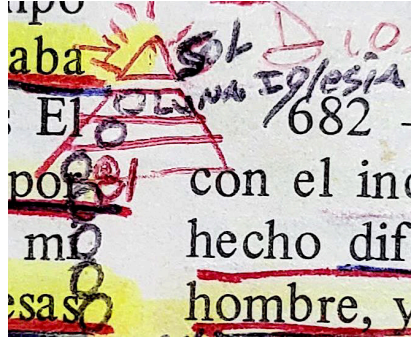 mpo
aba SOL
LUNA Iglesia
El 682 -
por con el ind
mi hecho dif
esas hombre, y